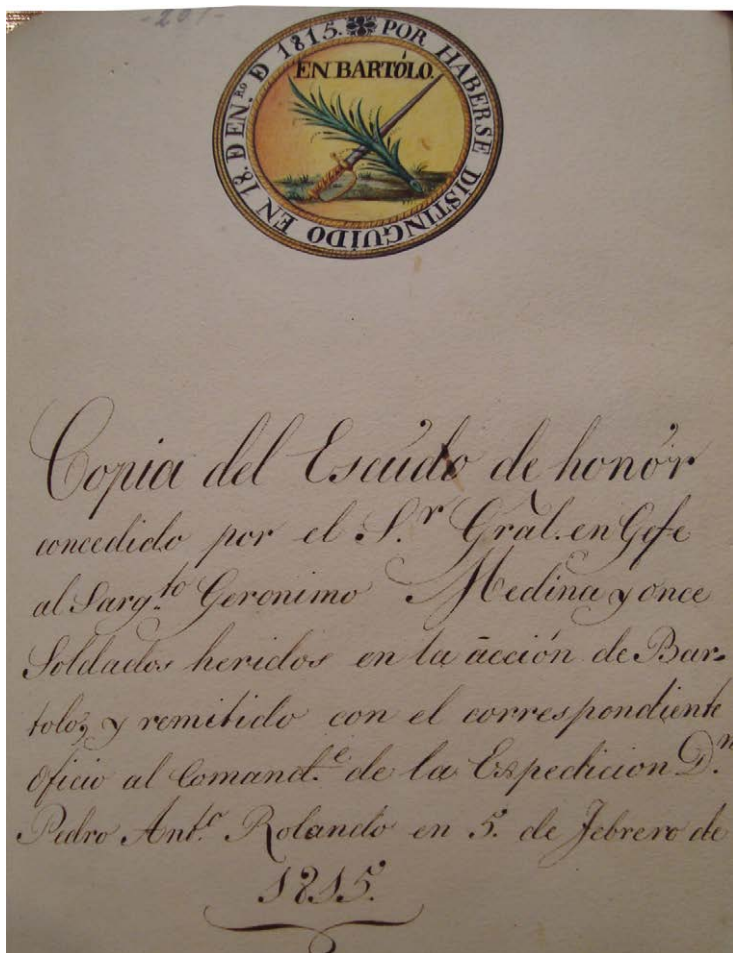 -201-
POR HABERSE DISTINGUIDO EN 18. D EN.RO D 1815.
EN BARTÓLO.
Copia del Escúdo de honór
concedido por el S.r Grãl. en Gefe
al Sarg.to Geronimo Medina y once
Soldados heridos en la acción de Bar-
tolo, y remitido con el correspondiente
Oficio al Comand.e de la Espedicion D.n
Pedro Ant.o Rolando en 5. de Febrero de
1815.